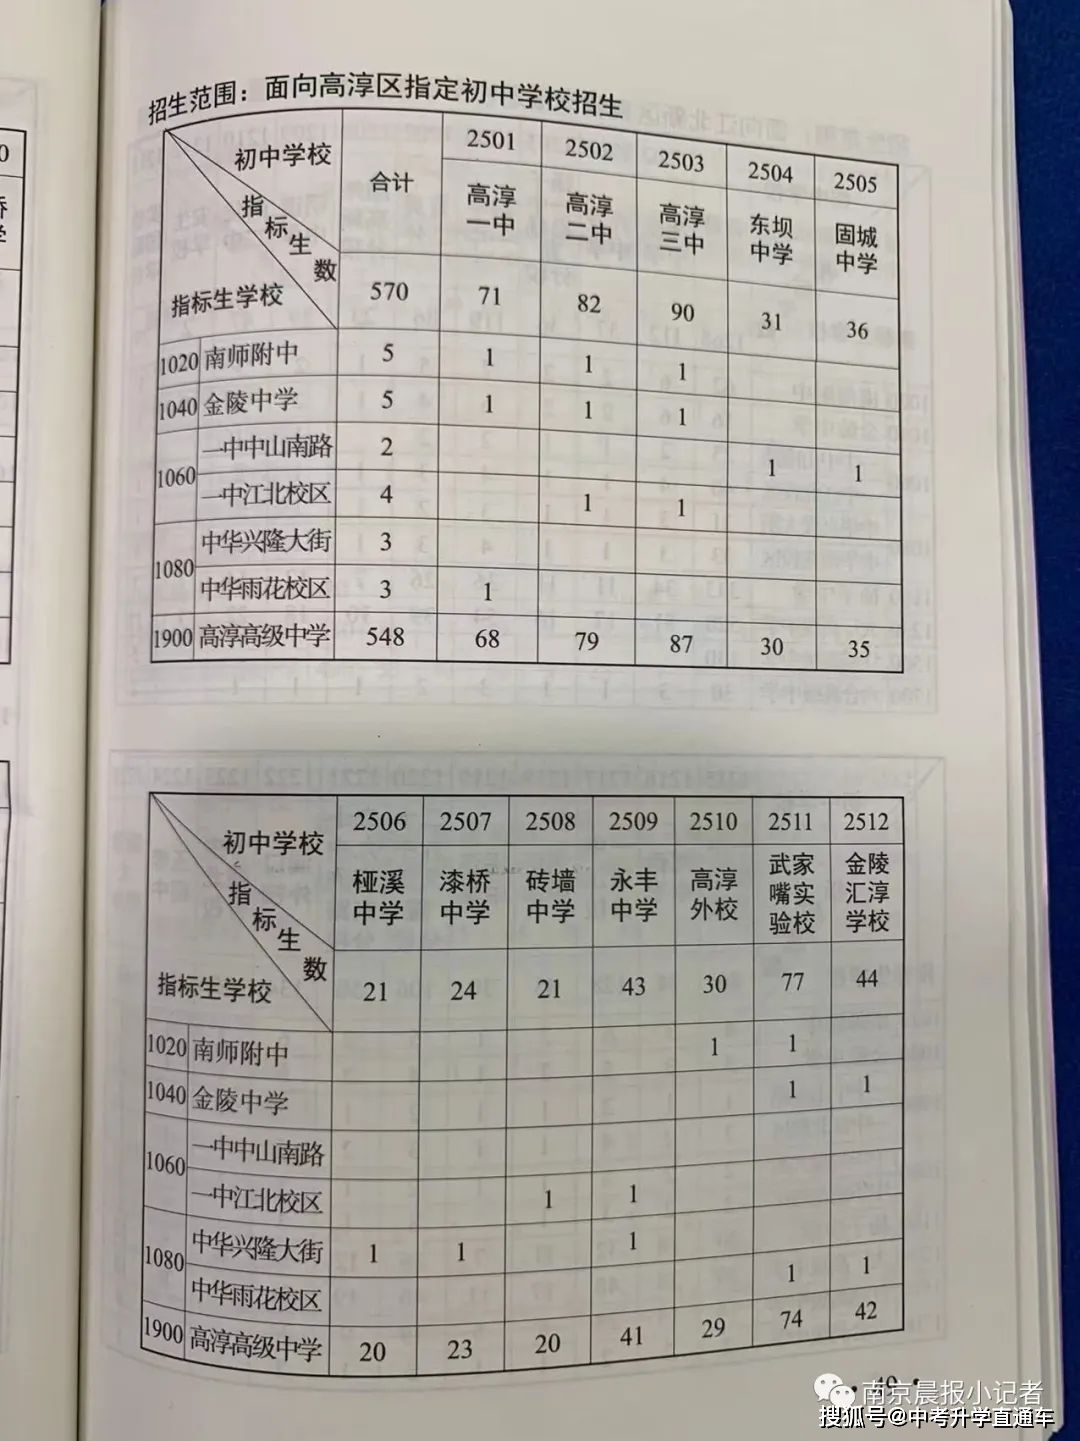 招生范围：面向高淳区指定初中学校招生
初中学校 指标生数 指标生学校 合计 2501 2502 2503 2504 2505
高淳一中 高淳二中 高淳三中 东坝中学 固城中学
570 71 82 90 31 36
1020 南师附中 5 1 1 1
1040 金陵中学 5 1 1 1
1060 一中中山南路 2 1 1
一中江北校区 4 1 1
1080 中华兴隆大街 3
中华雨花校区 3 1
1900 高淳高级中学 548 68 79 87 30 35
初中学校 指标生数 指标生学校 2506 2507 2508 2509 2510 2511 2512
桠溪中学 漆桥中学 砖墙中学 永丰中学 高淳外校 武家嘴实验校 金陵汇淳学校
21 24 21 43 30 77 44
1020 南师附中 1 1
1040 金陵中学 1 1
1060 一中中山南路
一中江北校区 1 1
1080 中华兴隆大街 1 1 1
中华雨花校区 1 1
1900 高淳高级中学 20 23 20 41 29 74 42
南京晨报小记者
搜狐号@中考升学直通车